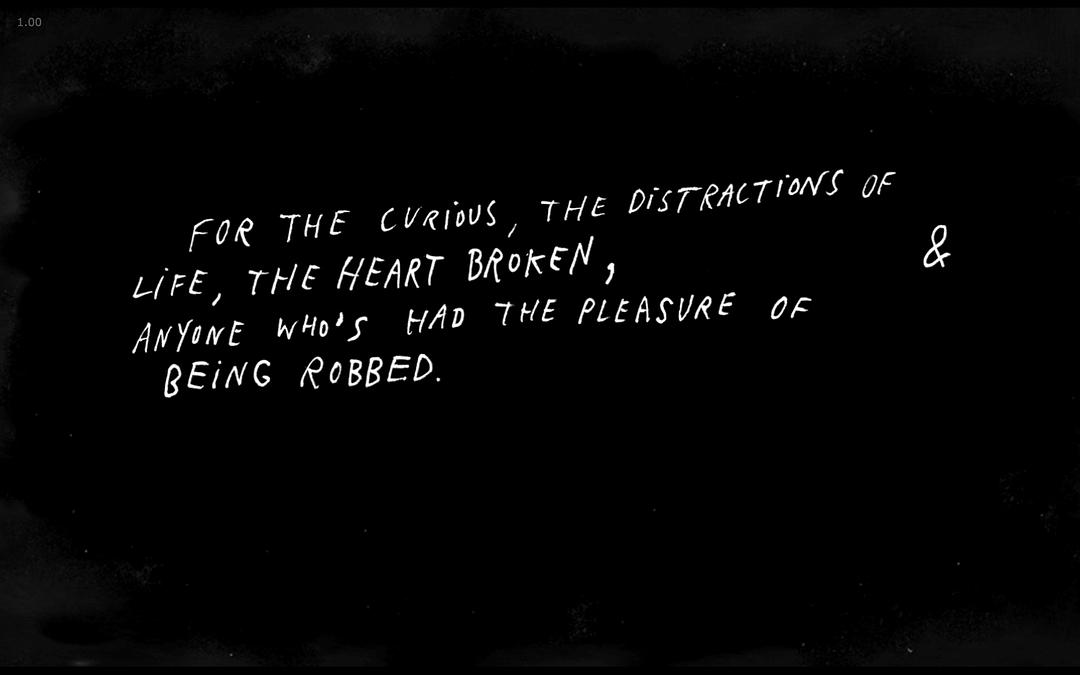 1.00
FOR THE CURIOUS, THE DISTRACTIONS OF
LIFE, THE HEART BROKEN, &
ANYONE WHO'S HAD THE PLEASURE OF
BEING ROBBED.